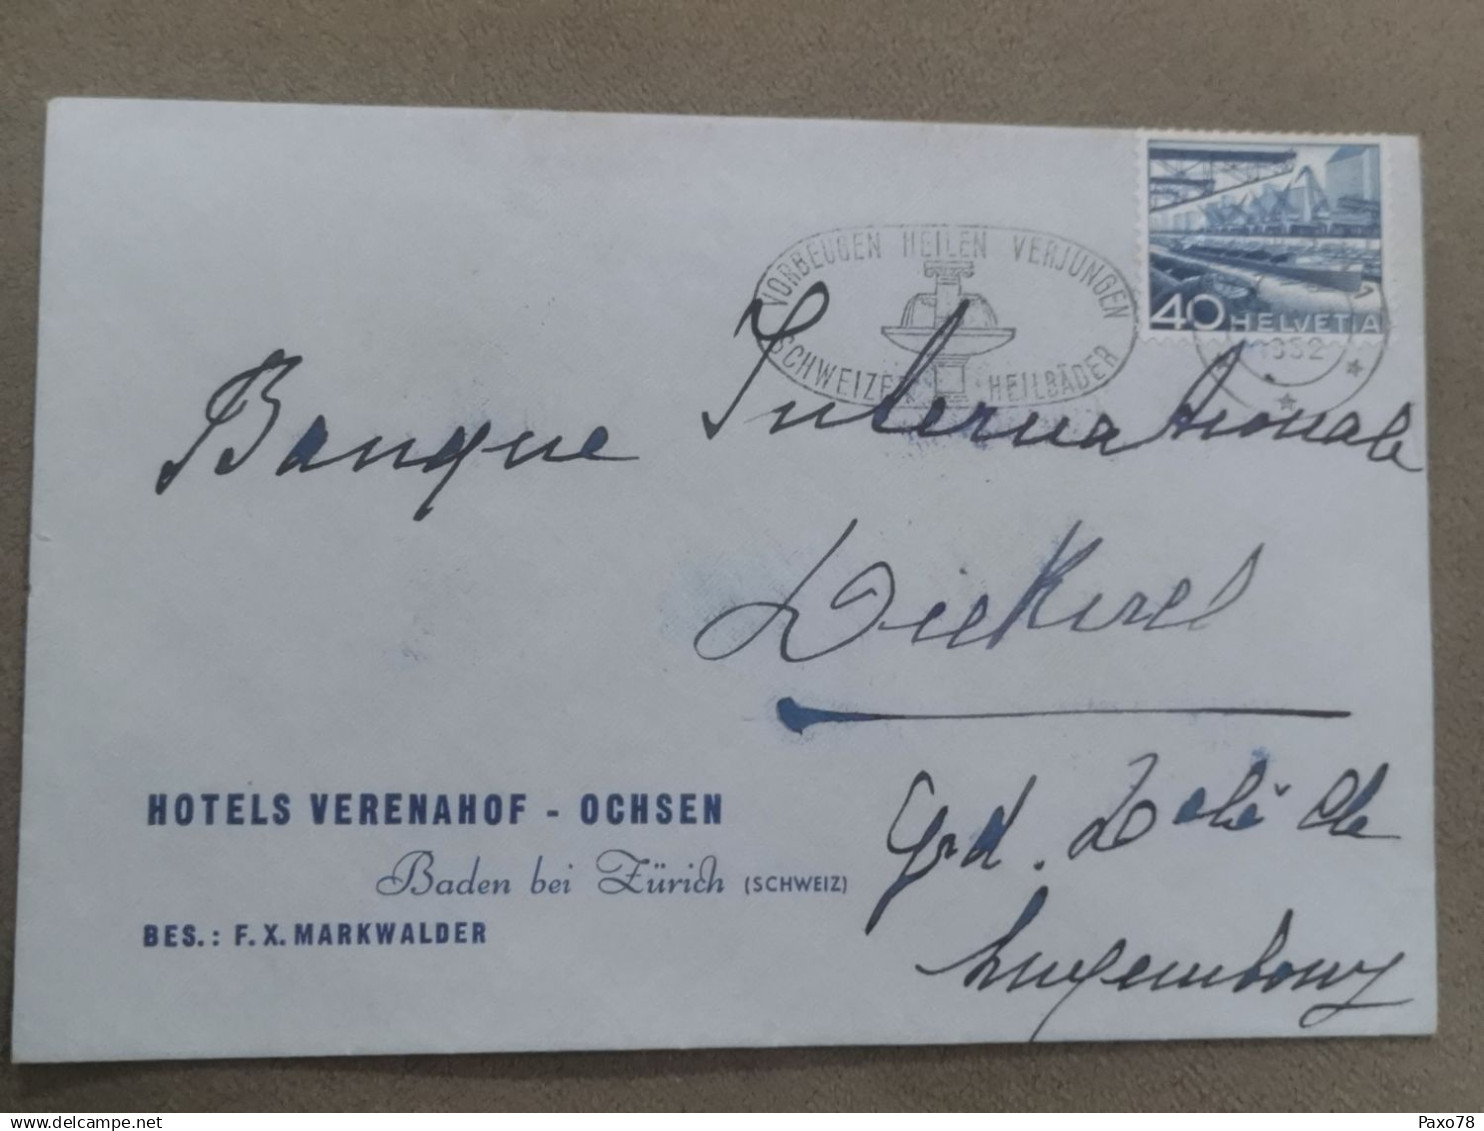 VORBEUGEN HEILEN VERJÜNGEN
SCHWEIZER HEILBÄDER
40 HELVETIA
1952
Banque Internationale
Diekirch
Grd. Duché de
Luxembourg
HOTELS VERENAHOF - OCHSEN
Baden bei Zürich (SCHWEIZ)
BES.: F. X. MARKWALDER
Paxo78